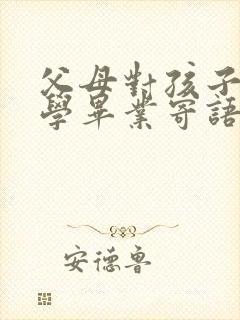 父母對孩子
學畢業寄語
安德魯